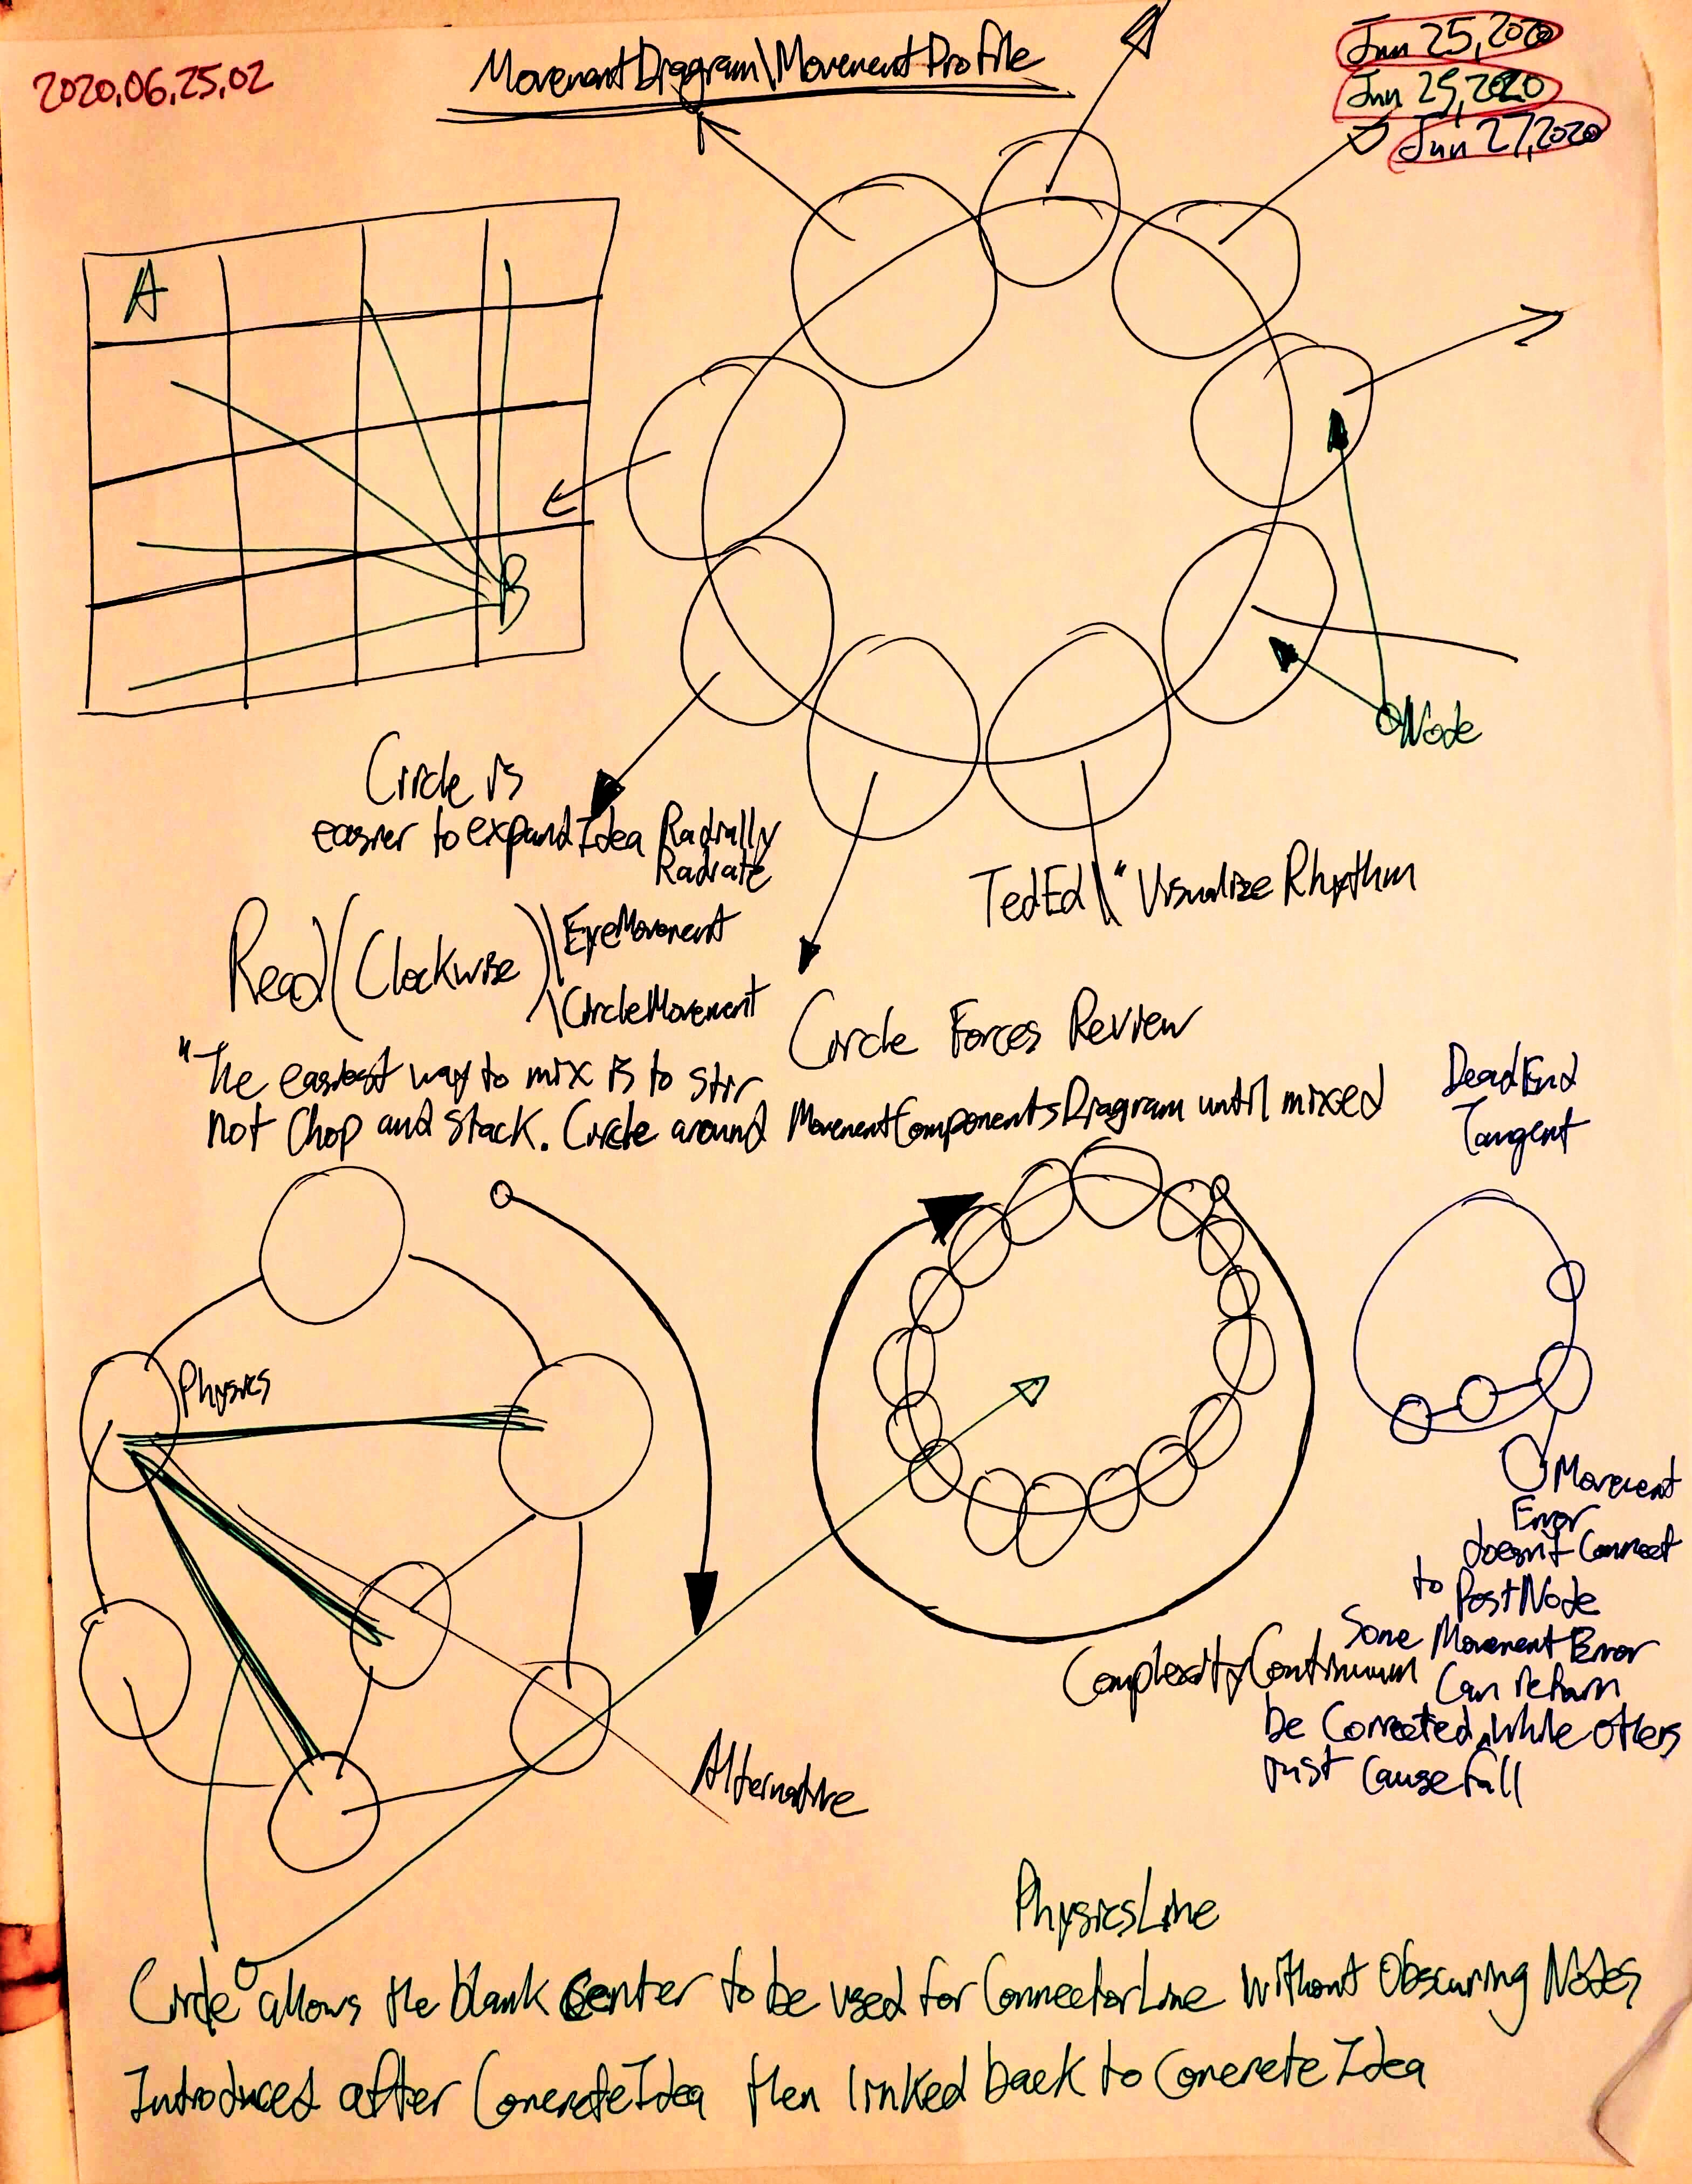 2020.06.25.02
MovementDiagram\MovementProfile
Jun 25, 2020
Jun 25, 2020
Jun 27, 2020
A
B
Node
Circle is
easier to expand Idea Radially
Radiate
TedEd\"Visualize Rhythm
Read(Clockwise)\EyeMovement
\CircleMovement
Circle Forces Review
"The easiest way to mix is to stir
not Chop and Stack. Circle around MovementComponentsDiagram until mixed
DeadEnd
Tangent
Physics
Movement
Error
doesn't Connect
to PostNode
Some Movement Error
Can return
be Corrected, while others
just cause fall
ComplexityContinuum
Alternative
PhysicsLine
Circle allows the blank Center to be used for ConnectorLine Without Obscuring Nodes
Introduced after ConcreteIdea then linked back to ConcreteIdea